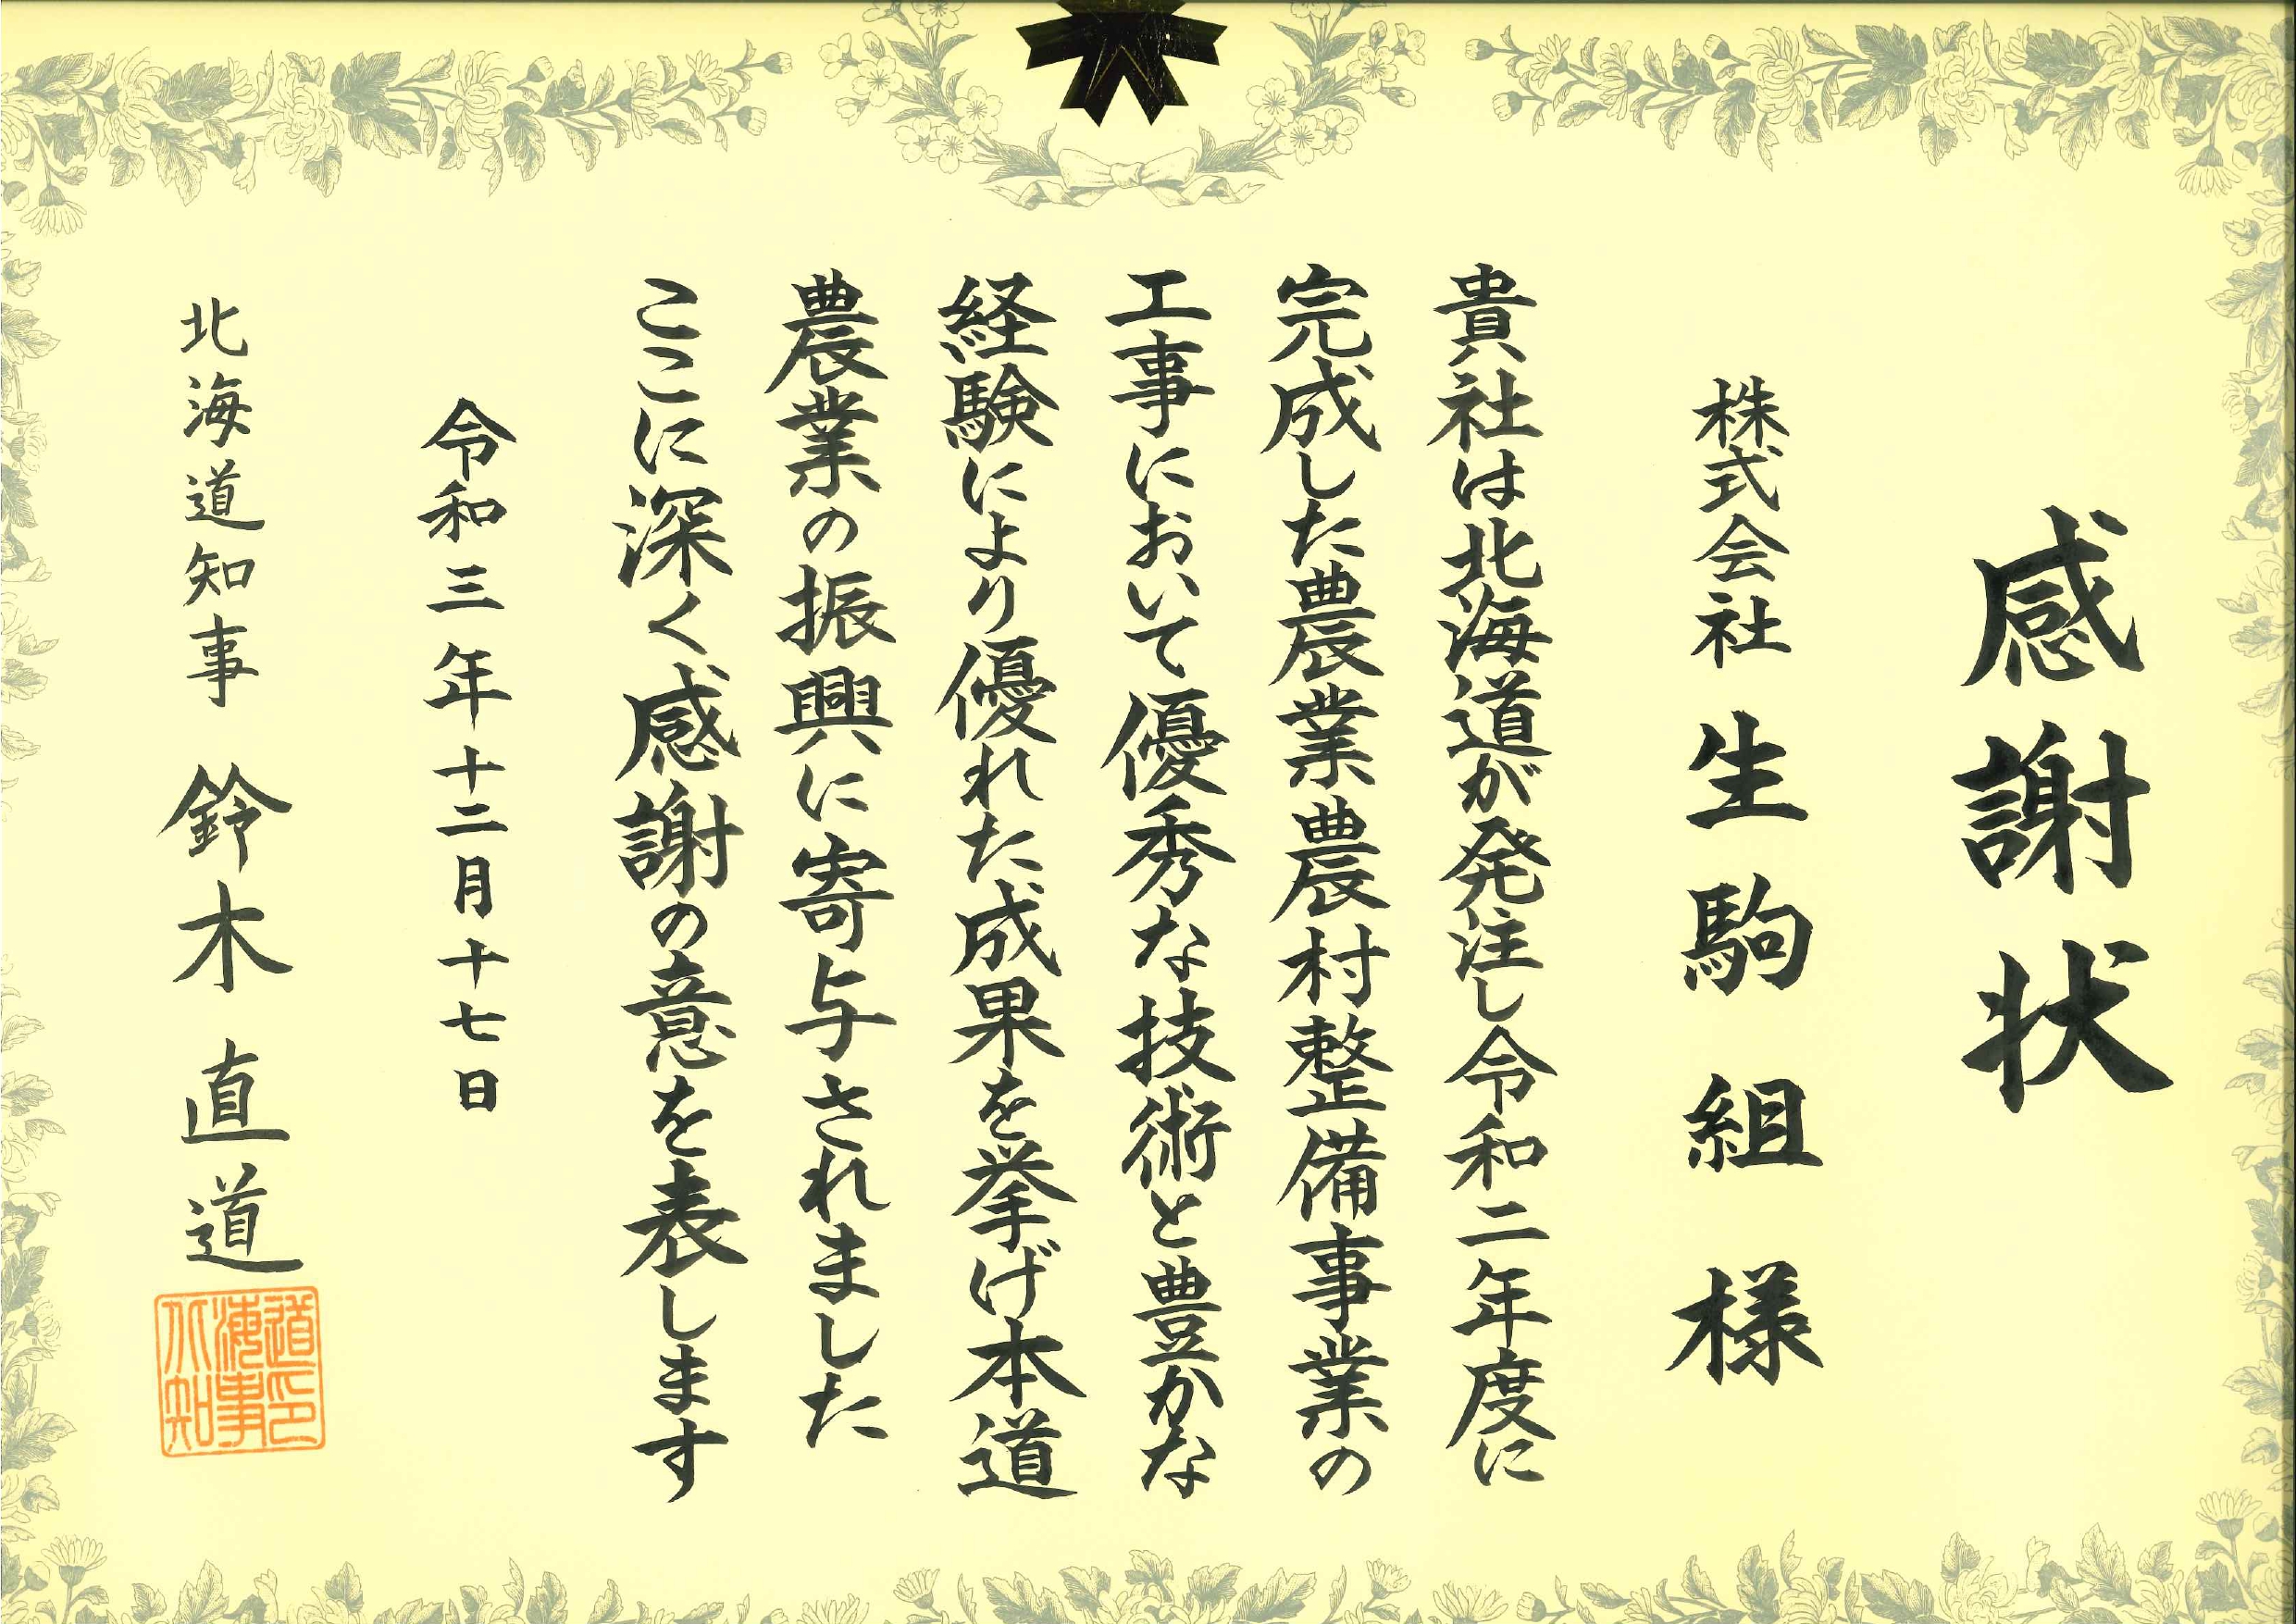 感謝状
株式会社 生駒組 様
貴社は北海道が発注し令和二年度に
完成した農業農村整備事業の
工事において優秀な技術と豊かな
経験により優れた成果を挙げ本道
農業の振興に寄与されました
ここに深く感謝の意を表します
令和三年十二月十七日
北海道知事 鈴木直道
北海道知事印